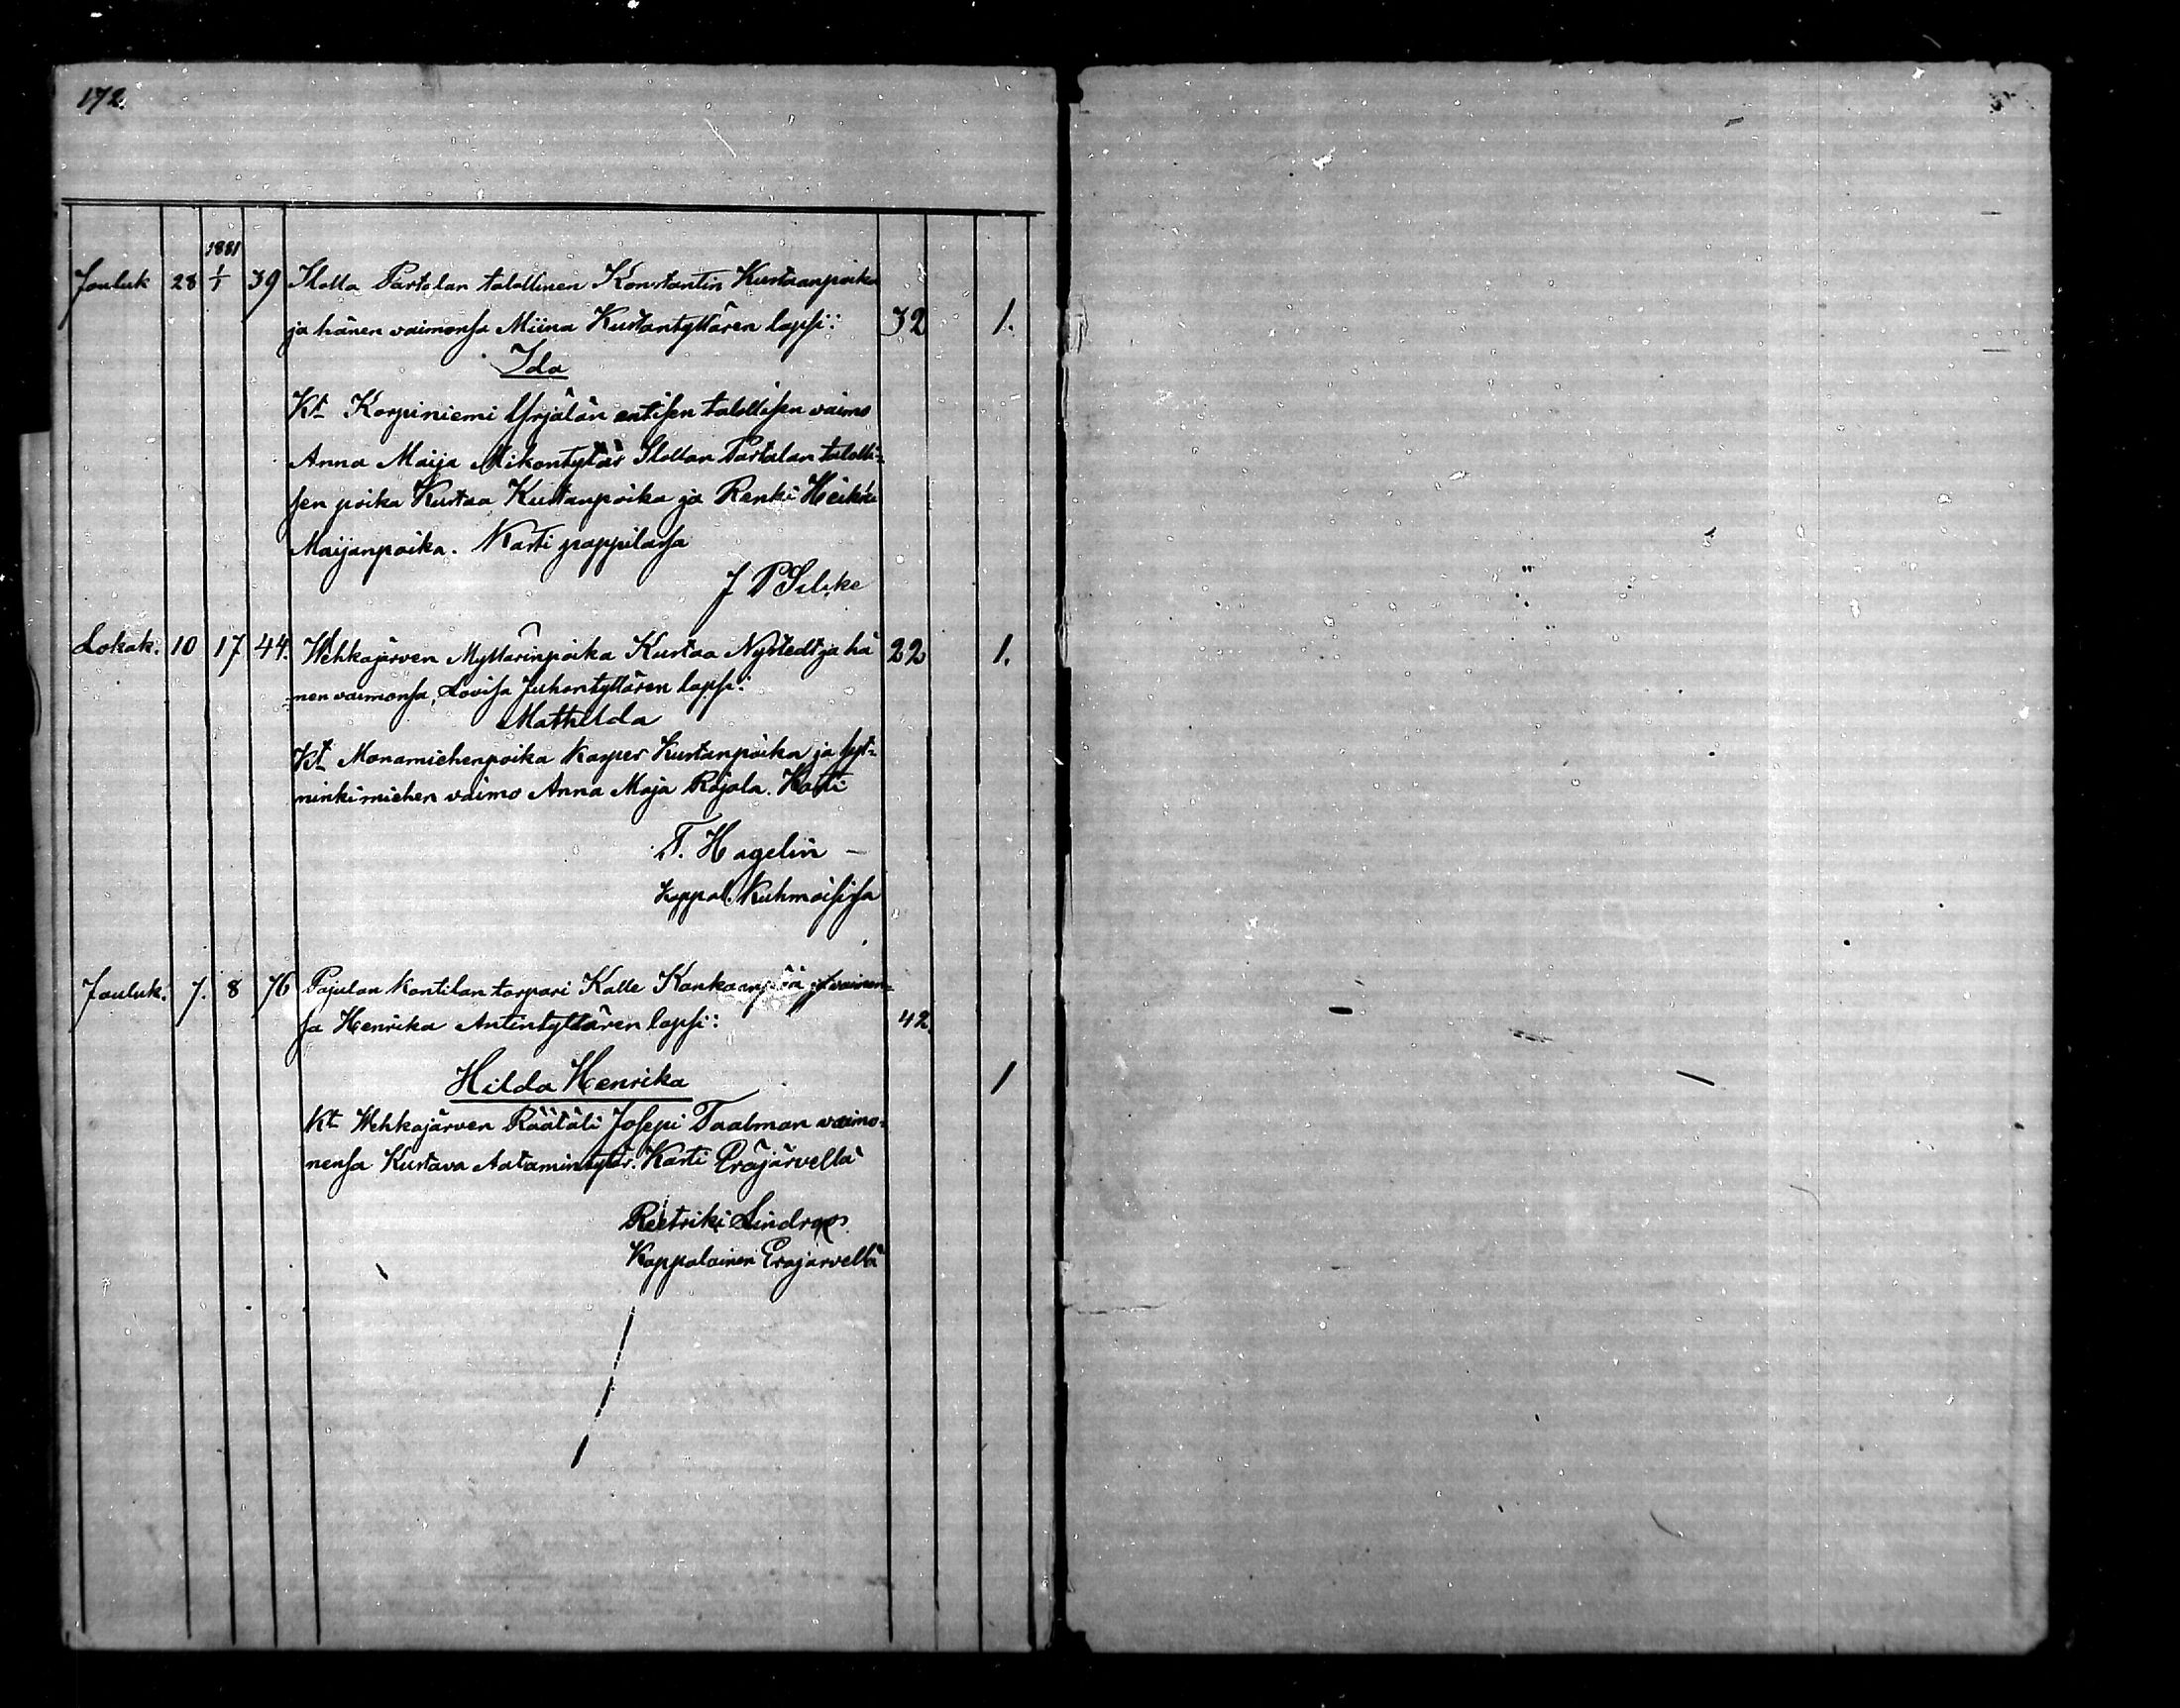 172.
1881
Jouluk 28 1/1 39 Ilolla Partolan talollinen Konstantin Kustaanpoika
ja hänen vaimonsa Miina Kustantyttären lapsi: 32 1.
Ida
Kt Korpiniemi Yrjälän entisen talollisen vaimo
Anna Maija Mikontytär Ilollan Partalan talolli-
sen poika Kustaa Kustanpoika ja Renki Heikki
Maijanpoika. Kasti pappilassa
J P
Lokak. 10 17 44. Wehkajärven Myllärinpoika Kustaa Nystedt ja hä 22 1.
nen vaimonsa, Lovisa Juhontyttären lapsi:
Mathilda
Kt Monamiehenpoika Kasper Kustanpoika ja syt-
ninkimiehen vaimo Anna Maja Rajala. Kasti
T. Hagelin –
Kappal. Kuhmoisissa
Jouluk. 7. 8 76 Pajulan Kontilan torpari Kalle Kankaanpään ja vaimon-
sa Henrika Antintyttären lapsi: 42
Hilda Henrika 1
Kt Wehkajärven Räätäli Josepi Taalman vaimo-
nensa Kustava Aatamintytär. Kasti Eräjärvellä
Reetriki Lindroos
Kappalainen Eräjärvellä